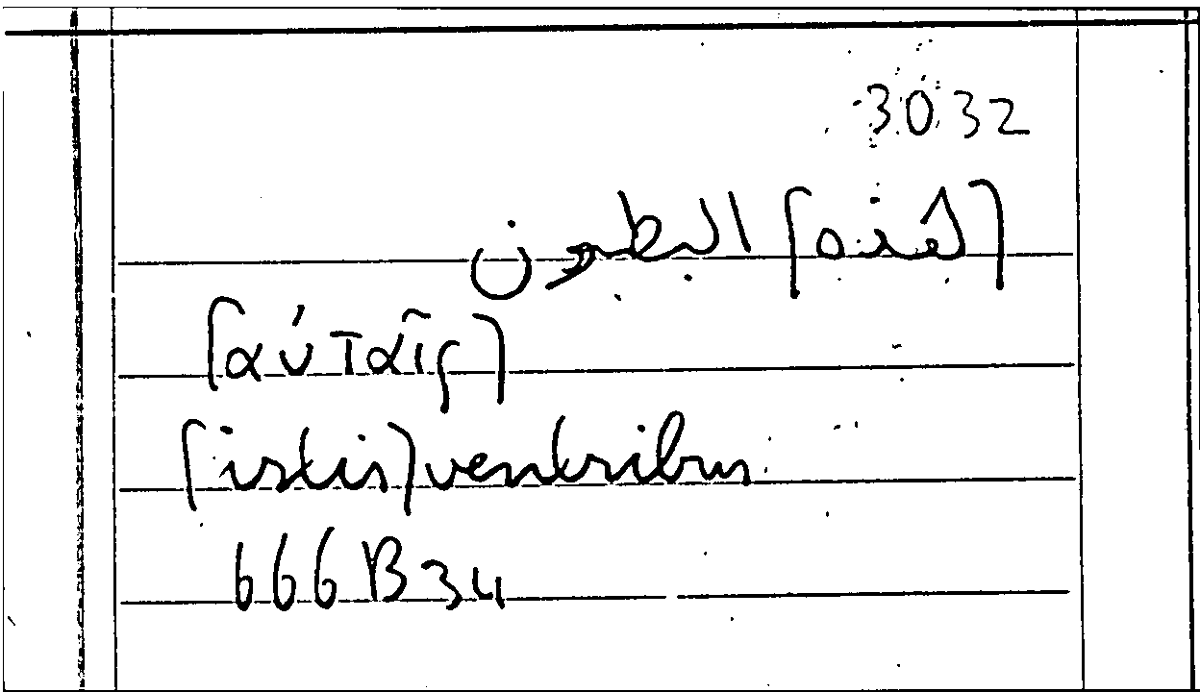 3032
[لهذه] البطون
[αὐταῖς]
[istis] ventribus
666 B 34